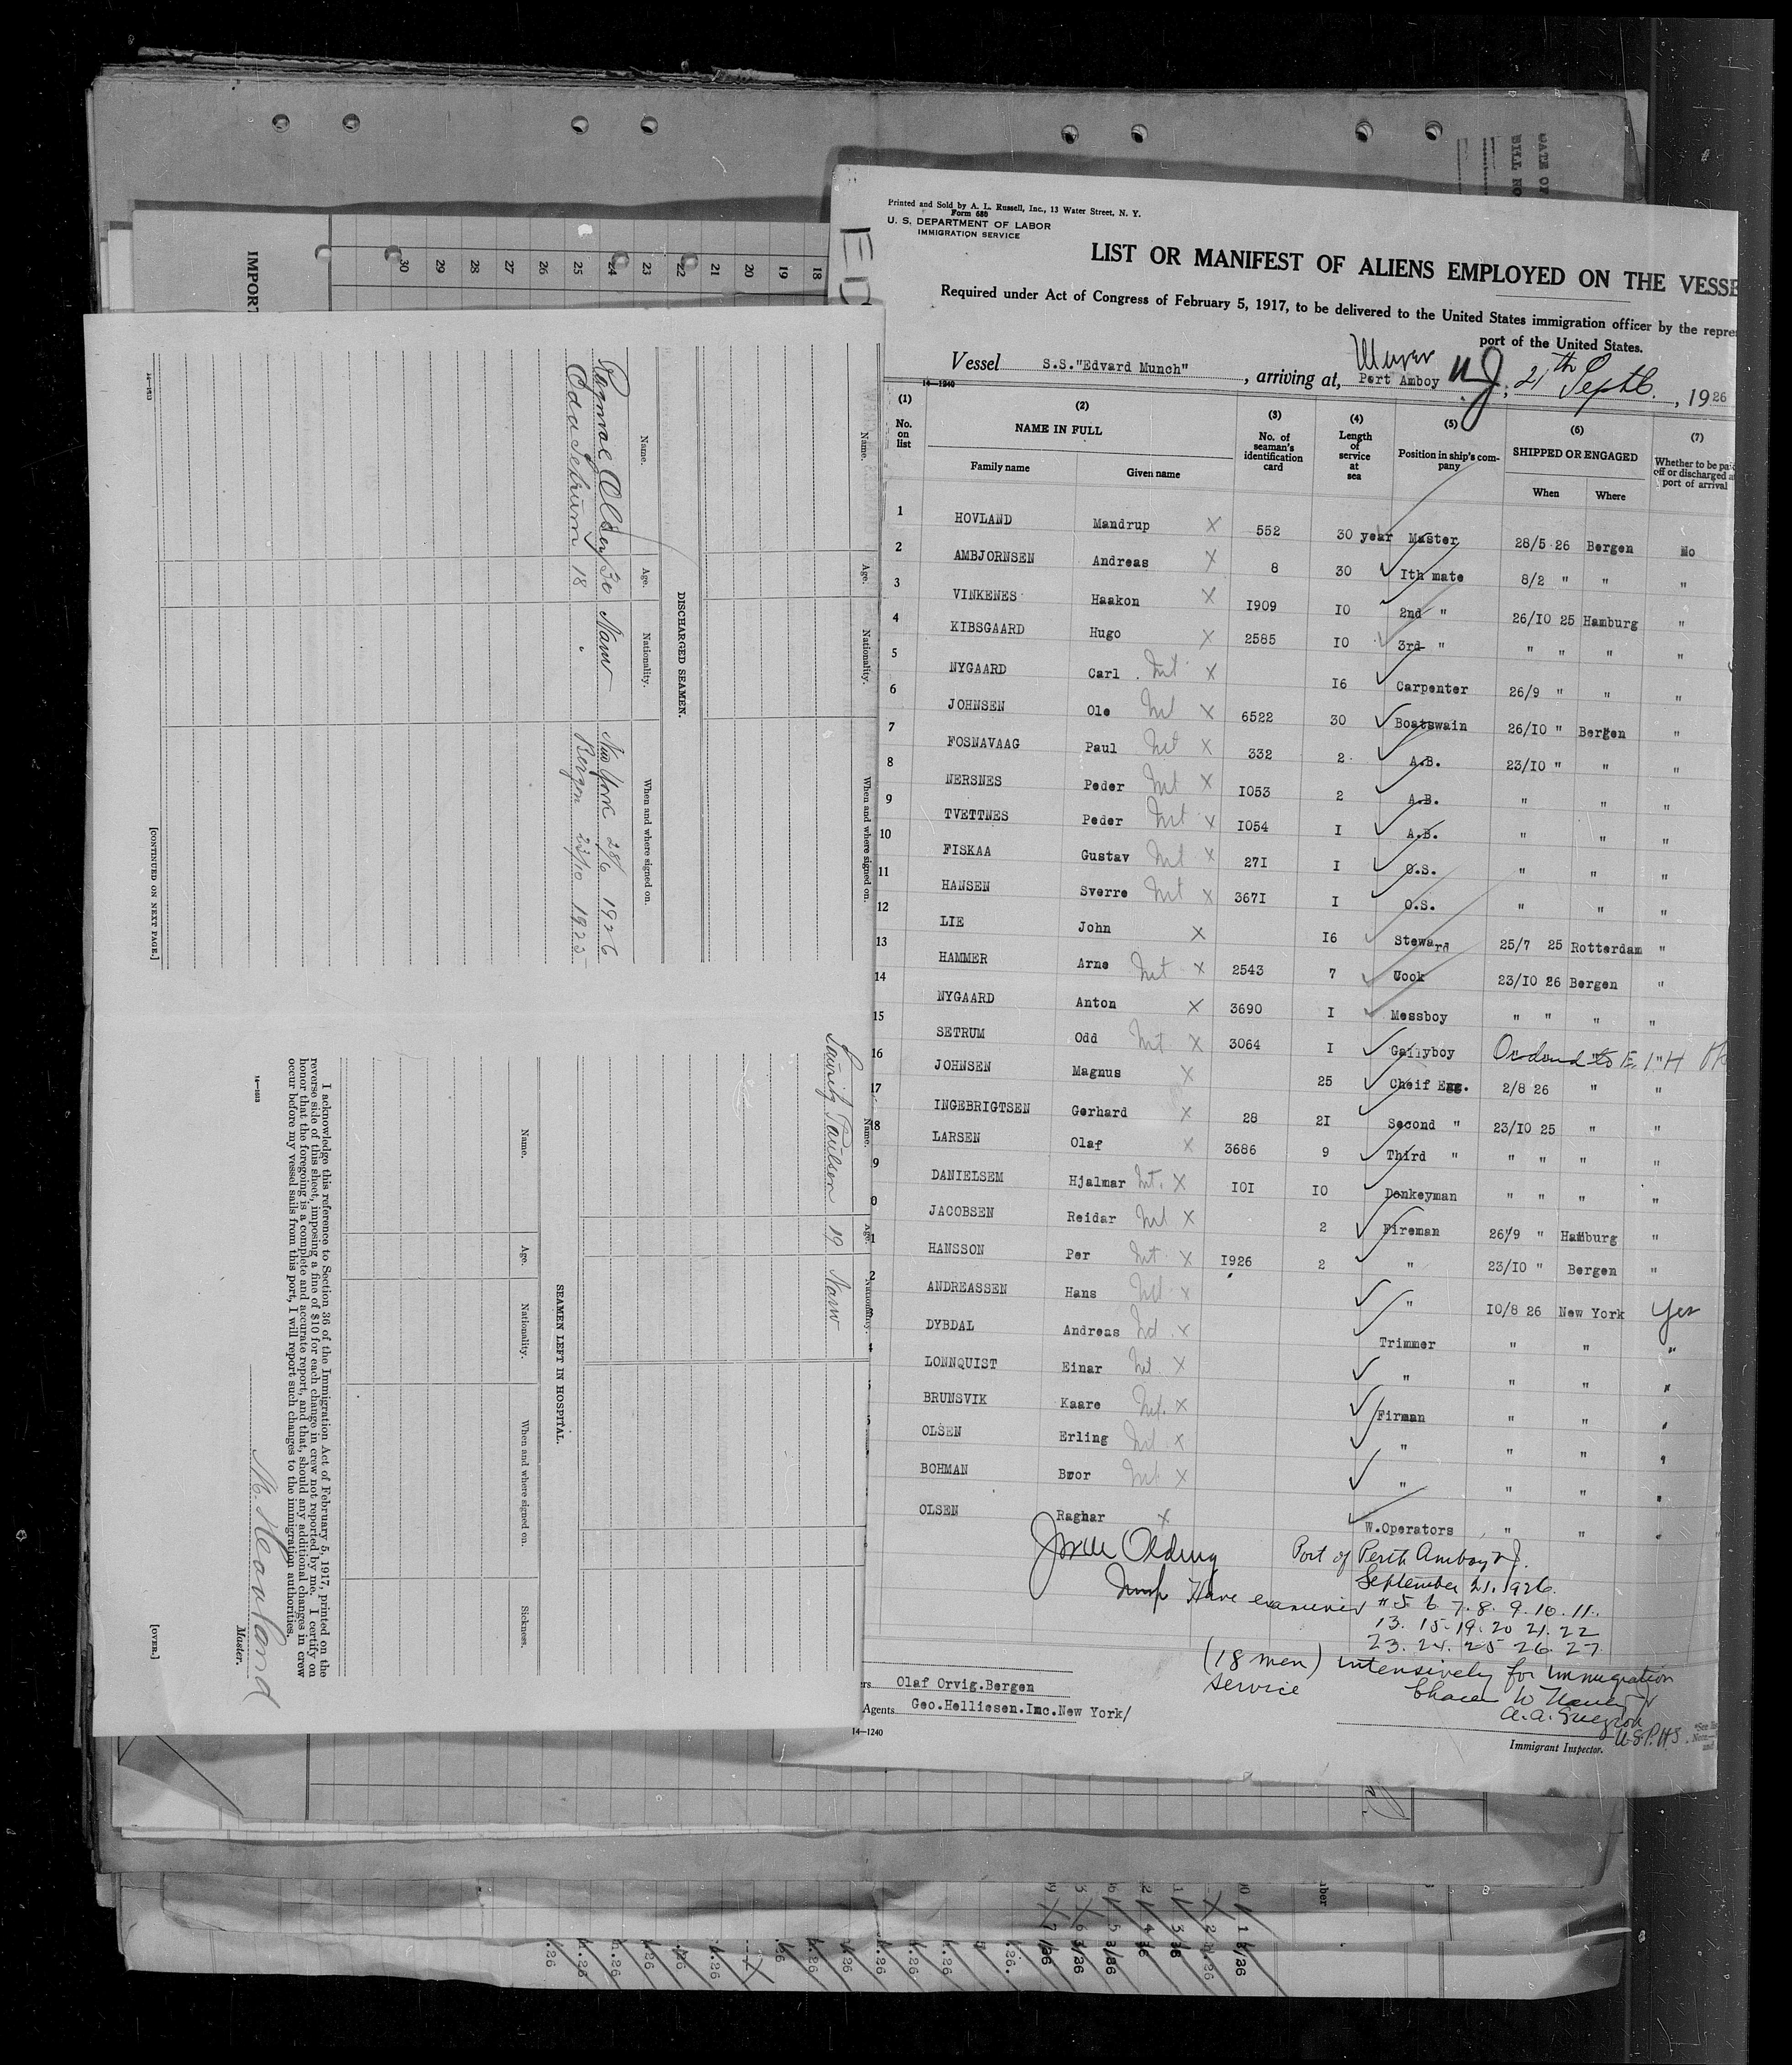 Printed and Sold by A. L. Russell, Inc., 13 Water Street, N. Y.
Form 680
U. S. DEPARTMENT OF LABOR
IMMIGRATION SERVICE
LIST OR MANIFEST OF ALIENS EMPLOYED ON THE VESSE
Required under Act of Congress of February 5, 1917, to be delivered to the United States immigration officer by the repre
port of the United States.
Vessel S.S."Edvard Munch" , arriving at, Port Amboy N J, 21th Septb. , 1926
14—1240
(1) (2) (3) (4) (5) (6) (7)
No. on list NAME IN FULL No. of seaman's identification card Length of service at sea Position in ship's company SHIPPED OR ENGAGED Whether to be paid off or discharged at port of arrival
Family name Given name When Where
1 HOVLAND Mandrup X 552 30 year Master 28/5 26 Bergen No
2 AMBJORNSEN Andreas X 8 30 Ith mate 8/2 " " "
3 VINKENES Haakon X I909 I0 2nd " 26/I0 25 Hamburg "
4 KIBSGAARD Hugo X 2585 I0 3rd " " " " "
5 NYGAARD Carl . X I6 Carpenter 26/9 " " "
6 JOHNSEN Ole X 6522 30 Boatswain 26/I0 " Bergen "
7 FOSNAVAAG Paul X 332 2 A.B. 23/I0 " " "
8 NERSNES Peder X I053 2 A.B. " " "
9 TVETTNES Peder X I054 I A.B. " " "
10 FISKAA Gustav X 27I I O.S. " " "
11 HANSEN Sverre X 367I I O.S. " " "
12 LIE John X I6 Steward 25/7 25 Rotterdam "
13 HAMMER Arne X 2543 7 Cook 23/I0 26 Bergen "
14 NYGAARD Anton X 3690 I Messboy " " " "
15 SETRUM Odd X 3064 I Gallyboy
16 JOHNSEN Magnus X 25 Cheif Eng. 2/8 26 " "
17 INGEBRIGTSEN Gerhard X 28 2I Second " 23/I0 25 " "
18 LARSEN Olaf X 3686 9 Third " " " " "
9 DANIELSEM Hjalmar X I0I I0 Donkeyman " " " "
0 JACOBSEN Reidar X 2 Fireman 26/9 " Hamburg "
1 HANSSON Per X I926 2 " 23/I0 " Bergen "
2 ANDREASSEN Hans X " I0/8 26 New York Yes
3 DYBDAL Andreas X Trimmer " " "
4 LONNQUIST Einar X " " " "
BRUNSVIK Kaare X Firman " " "
OLSEN Erling X " " " "
BOHMAN Bror X " " " "
OLSEN Ragnar X W.Operators " " "
Port of Perth Amboy N J.
September 21, 1926.
Have examined # 5. 6. 7. 8. 9. 10. 11.
13. 15. 19. 20 21. 22
23. 24. 25 26. 27.
(18 men) intensively for Immigration
Service
U.S.P.H.S.
Olaf Orvig.Bergen
Agents Geo.Helliesen.Inc.New York/
14—1240
Immigrant Inspector.
Name. Age. Nationality. When and where signed on.
DISCHARGED SEAMEN.
Name. Age. Nationality. When and where signed on.
Ragnval Olsen 30 Norw New York 28/6 1926
Odd Setrum 18 " Bergen 23/10 1925
[CONTINUED ON NEXT PAGE.]
14—1933
Name. Age. Nationality.
Lauritz Paulsen 19 Norw
SEAMEN LEFT IN HOSPITAL.
Name. Age. Nationality. When and where signed on. Sickness.
I acknowledge this reference to Section 36 of the Immigration Act of February 5, 1917, printed on the
reverse side of this sheet, imposing a fine of $10 for each change in crew not reported by me. I certify on
honor that the foregoing is a complete and accurate report, and that, should any additional changes in crew
occur before my vessel sails from this port, I will report such changes to the immigration authorities.
M. Hovland
Master.
[OVER.]
IMPORT
30 29 28 27 26 25 24 23 22 21 20 19 18
BILL NO